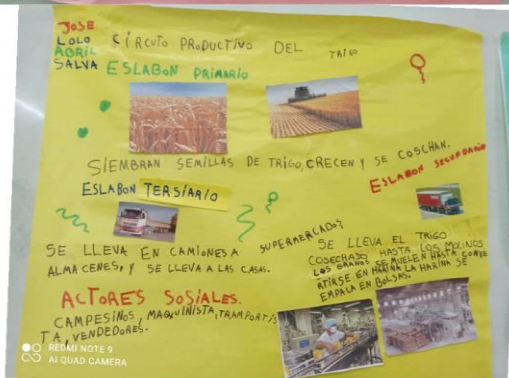 JOSE
LOLO
ABRIL
SALVA
CIRCUTO PRODUCTIVO DEL TRIGO
ESLABON PRIMARIO
SIEMBRAN SEMILLAS DE TRIGO, CRECEN Y SE COSCHAN.
ESLABON TERSIARIO
SE LLEVA EN CAMIONES A SUPERMERCADOS
ALMACENES, Y SE LLEVA A LAS CASAS.
ESLABON SECUNDARIO
SE LLEVA EL TRIGO
COSECHADO HASTA LOS MOLINOS
LOS GRANOS SE MUELEN HASTA CONVE
RTIRSE EN HARINA LA HARINA SE
EMPACA EN BOLSAS.
ACTORES SOSIALES.
CAMPESINOS, MAQUINISTA, TRAMPORTIS
TA, VENDEDORES.
REDMI NOTE 9
AI QUAD CAMERA